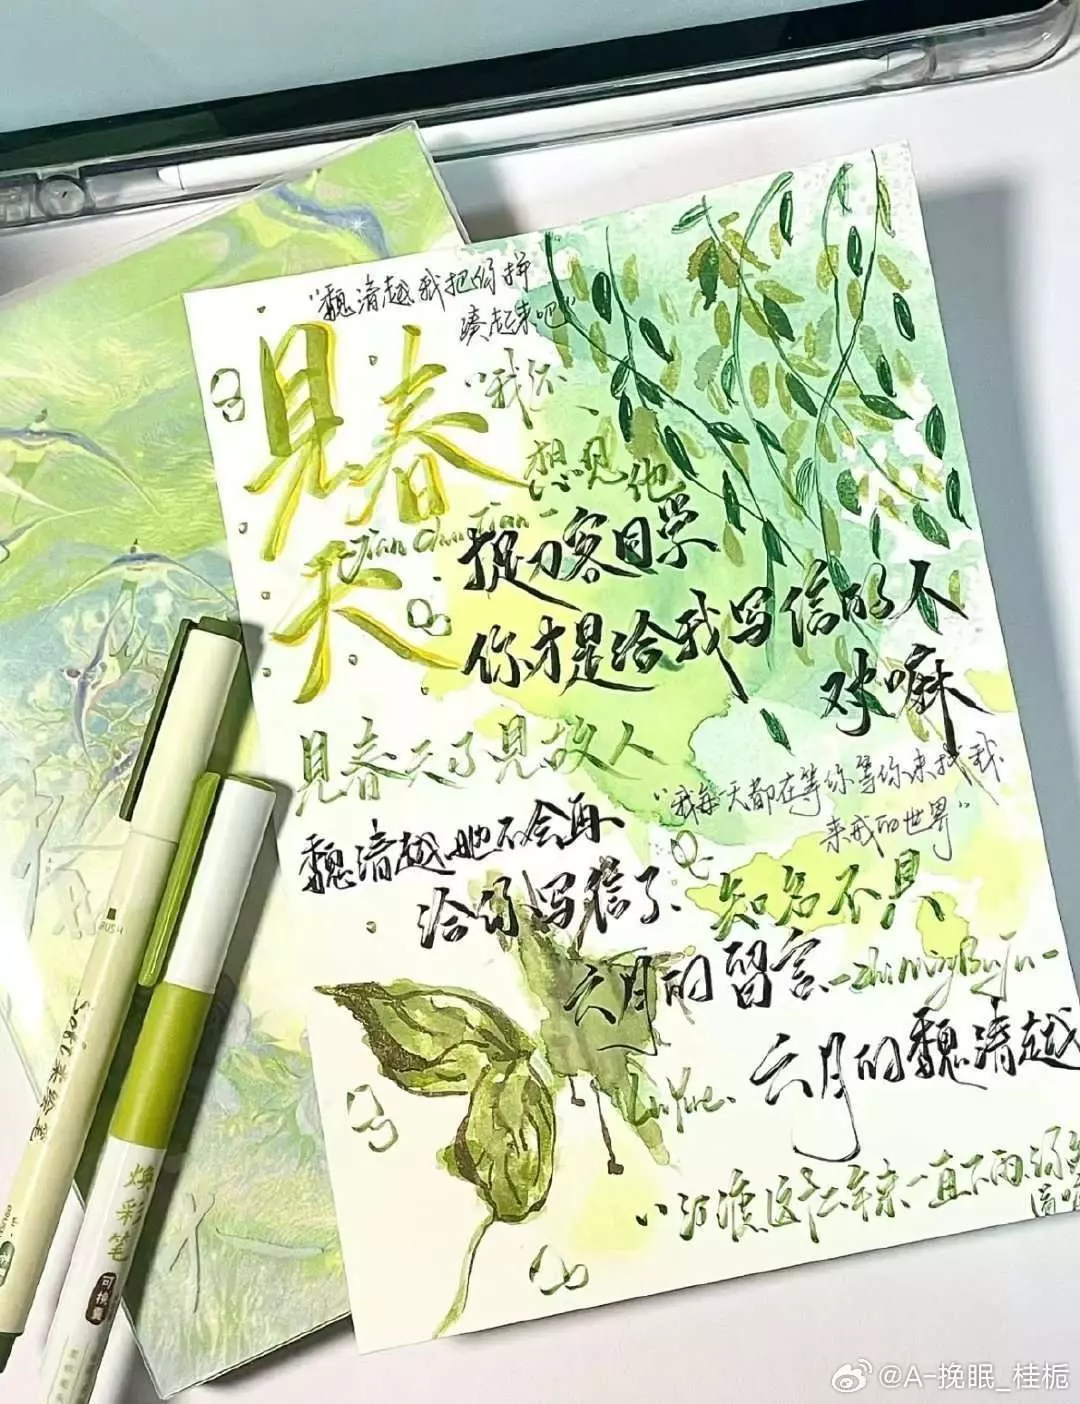 “魏清越我把你拼
凑起来吧”
見春
天
Jian Chun Tian
“我还
想见他”
提刀客同学
你才是给我写信的人
对嘛
見春天了見故人
“我每一天都在等你等你来找我
来我的世界”
魏清越她不会再
给你写信了
知名不具
-Zhi Ming Bu Ju-
六月的留言
Liu Yue.
六月的魏清越
江渡这些年来一直下雨
BUSH
Sakit 柔绘笔
焕彩笔
可换囊
@A-挽眠_桂栀